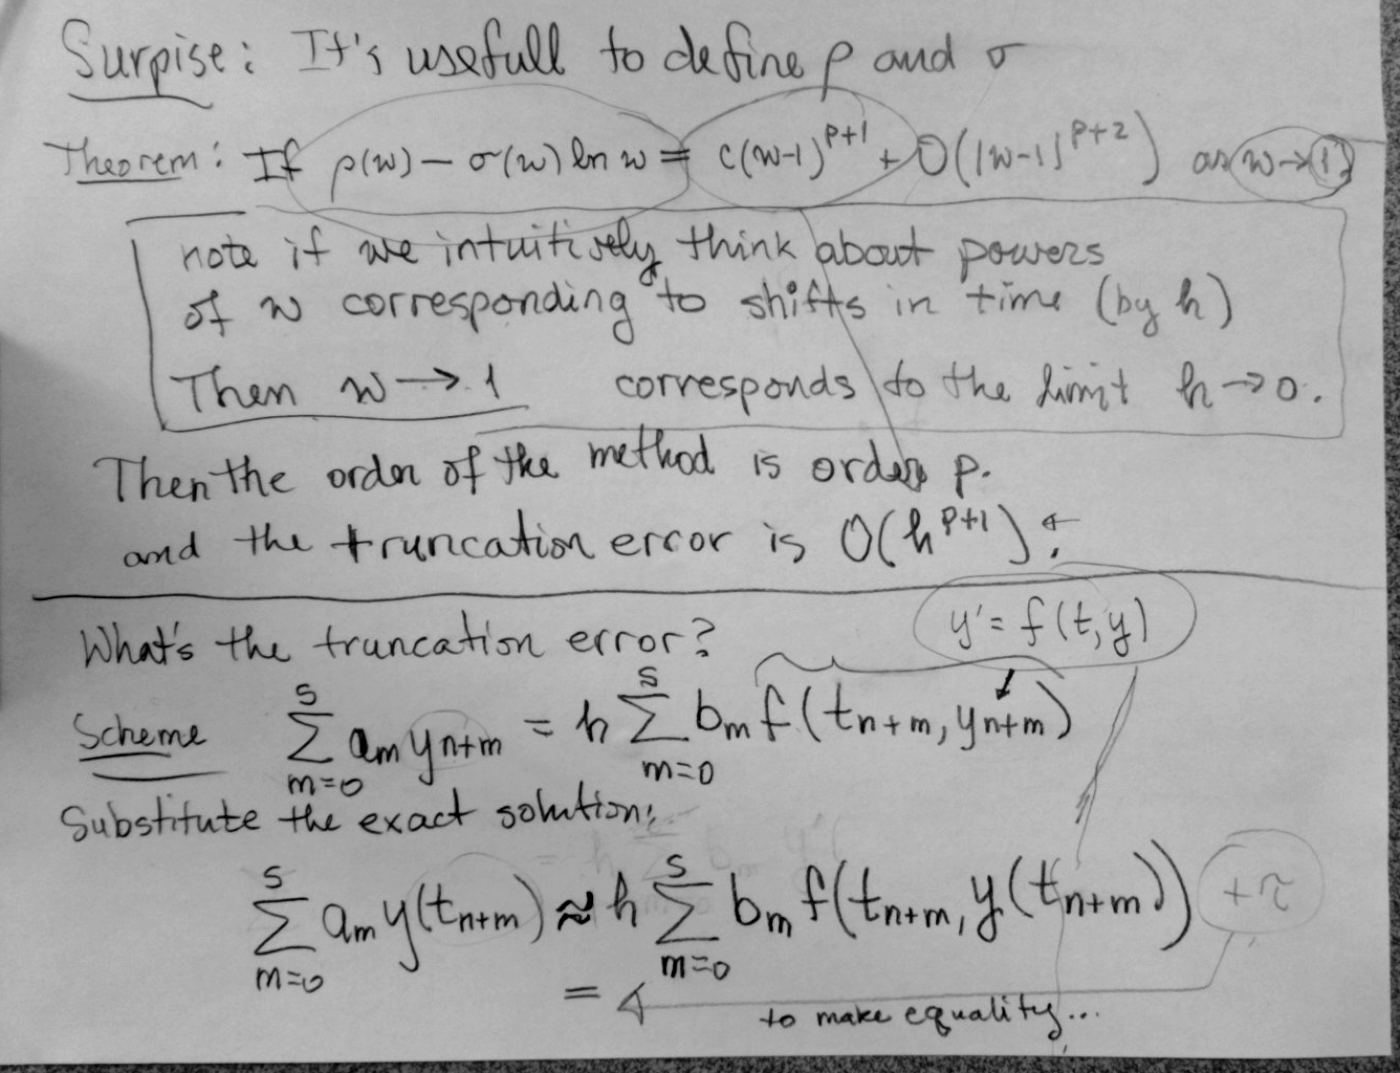 Surpise: It's usefull to define ρ and σ
Theorem: If ρ(w) − σ(w) ln w = c(w-1)^{p+1} + O(|w-1|^{p+2}) as w→1
note if we intuitively think about powers
of w corresponding to shifts in time (by h)
Then w → 1 corresponds to the limit h → 0.
Then the order of the method is order p.
and the truncation error is O(h^{p+1}).
What's the truncation error?
y' = f(t,y)
Scheme ∑_{m=0}^{s} a_m y_{n+m} = h ∑_{m=0}^{s} b_m f(t_{n+m}, y_{n+m})
Substitute the exact solution:
∑_{m=0}^{s} a_m y(t_{n+m}) ≈ h ∑_{m=0}^{s} b_m f(t_{n+m}, y(t_{n+m})) + τ
=
to make equality...